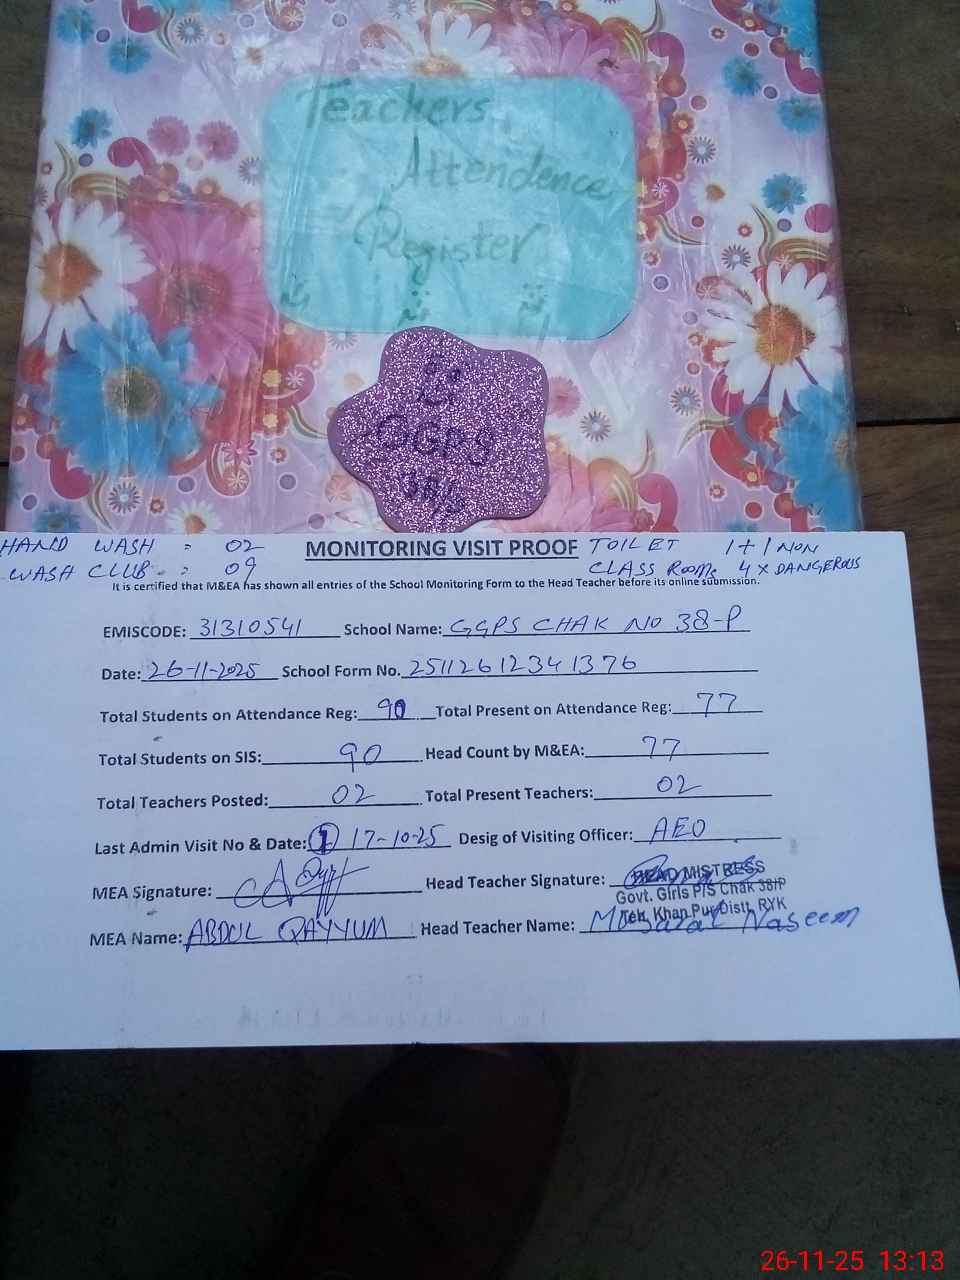 Teachers
Attendence
Register
GGPS
38/P
HAND WASH = 02
MONITORING VISIT PROOF
TOILET 1+1 NON
WASH CLUB = 09
CLASS ROOM 4 X DANGEROUS
It is certified that M&EA has shown all entries of the School Monitoring Form to the Head Teacher before its online submission.
EMISCODE: 31310541 School Name: GGPS CHAK NO 38-P
Date: 26-11-2025 School Form No. 25112612341376
Total Students on Attendance Reg: 90 Total Present on Attendance Reg: 77
Total Students on SIS: 90 Head Count by M&EA: 77
Total Teachers Posted: 02 Total Present Teachers: 02
Last Admin Visit No & Date: 1 17-10-25 Desig of Visiting Officer: AEO
MEA Signature: Head Teacher Signature:
HEAD MISTRESS
Govt. Girls P/S Chak 38/P
Teh. Khan Pur Distt. RYK
MEA Name: ABDUL QAYYUM Head Teacher Name: Naseem
26-11-25 13:13